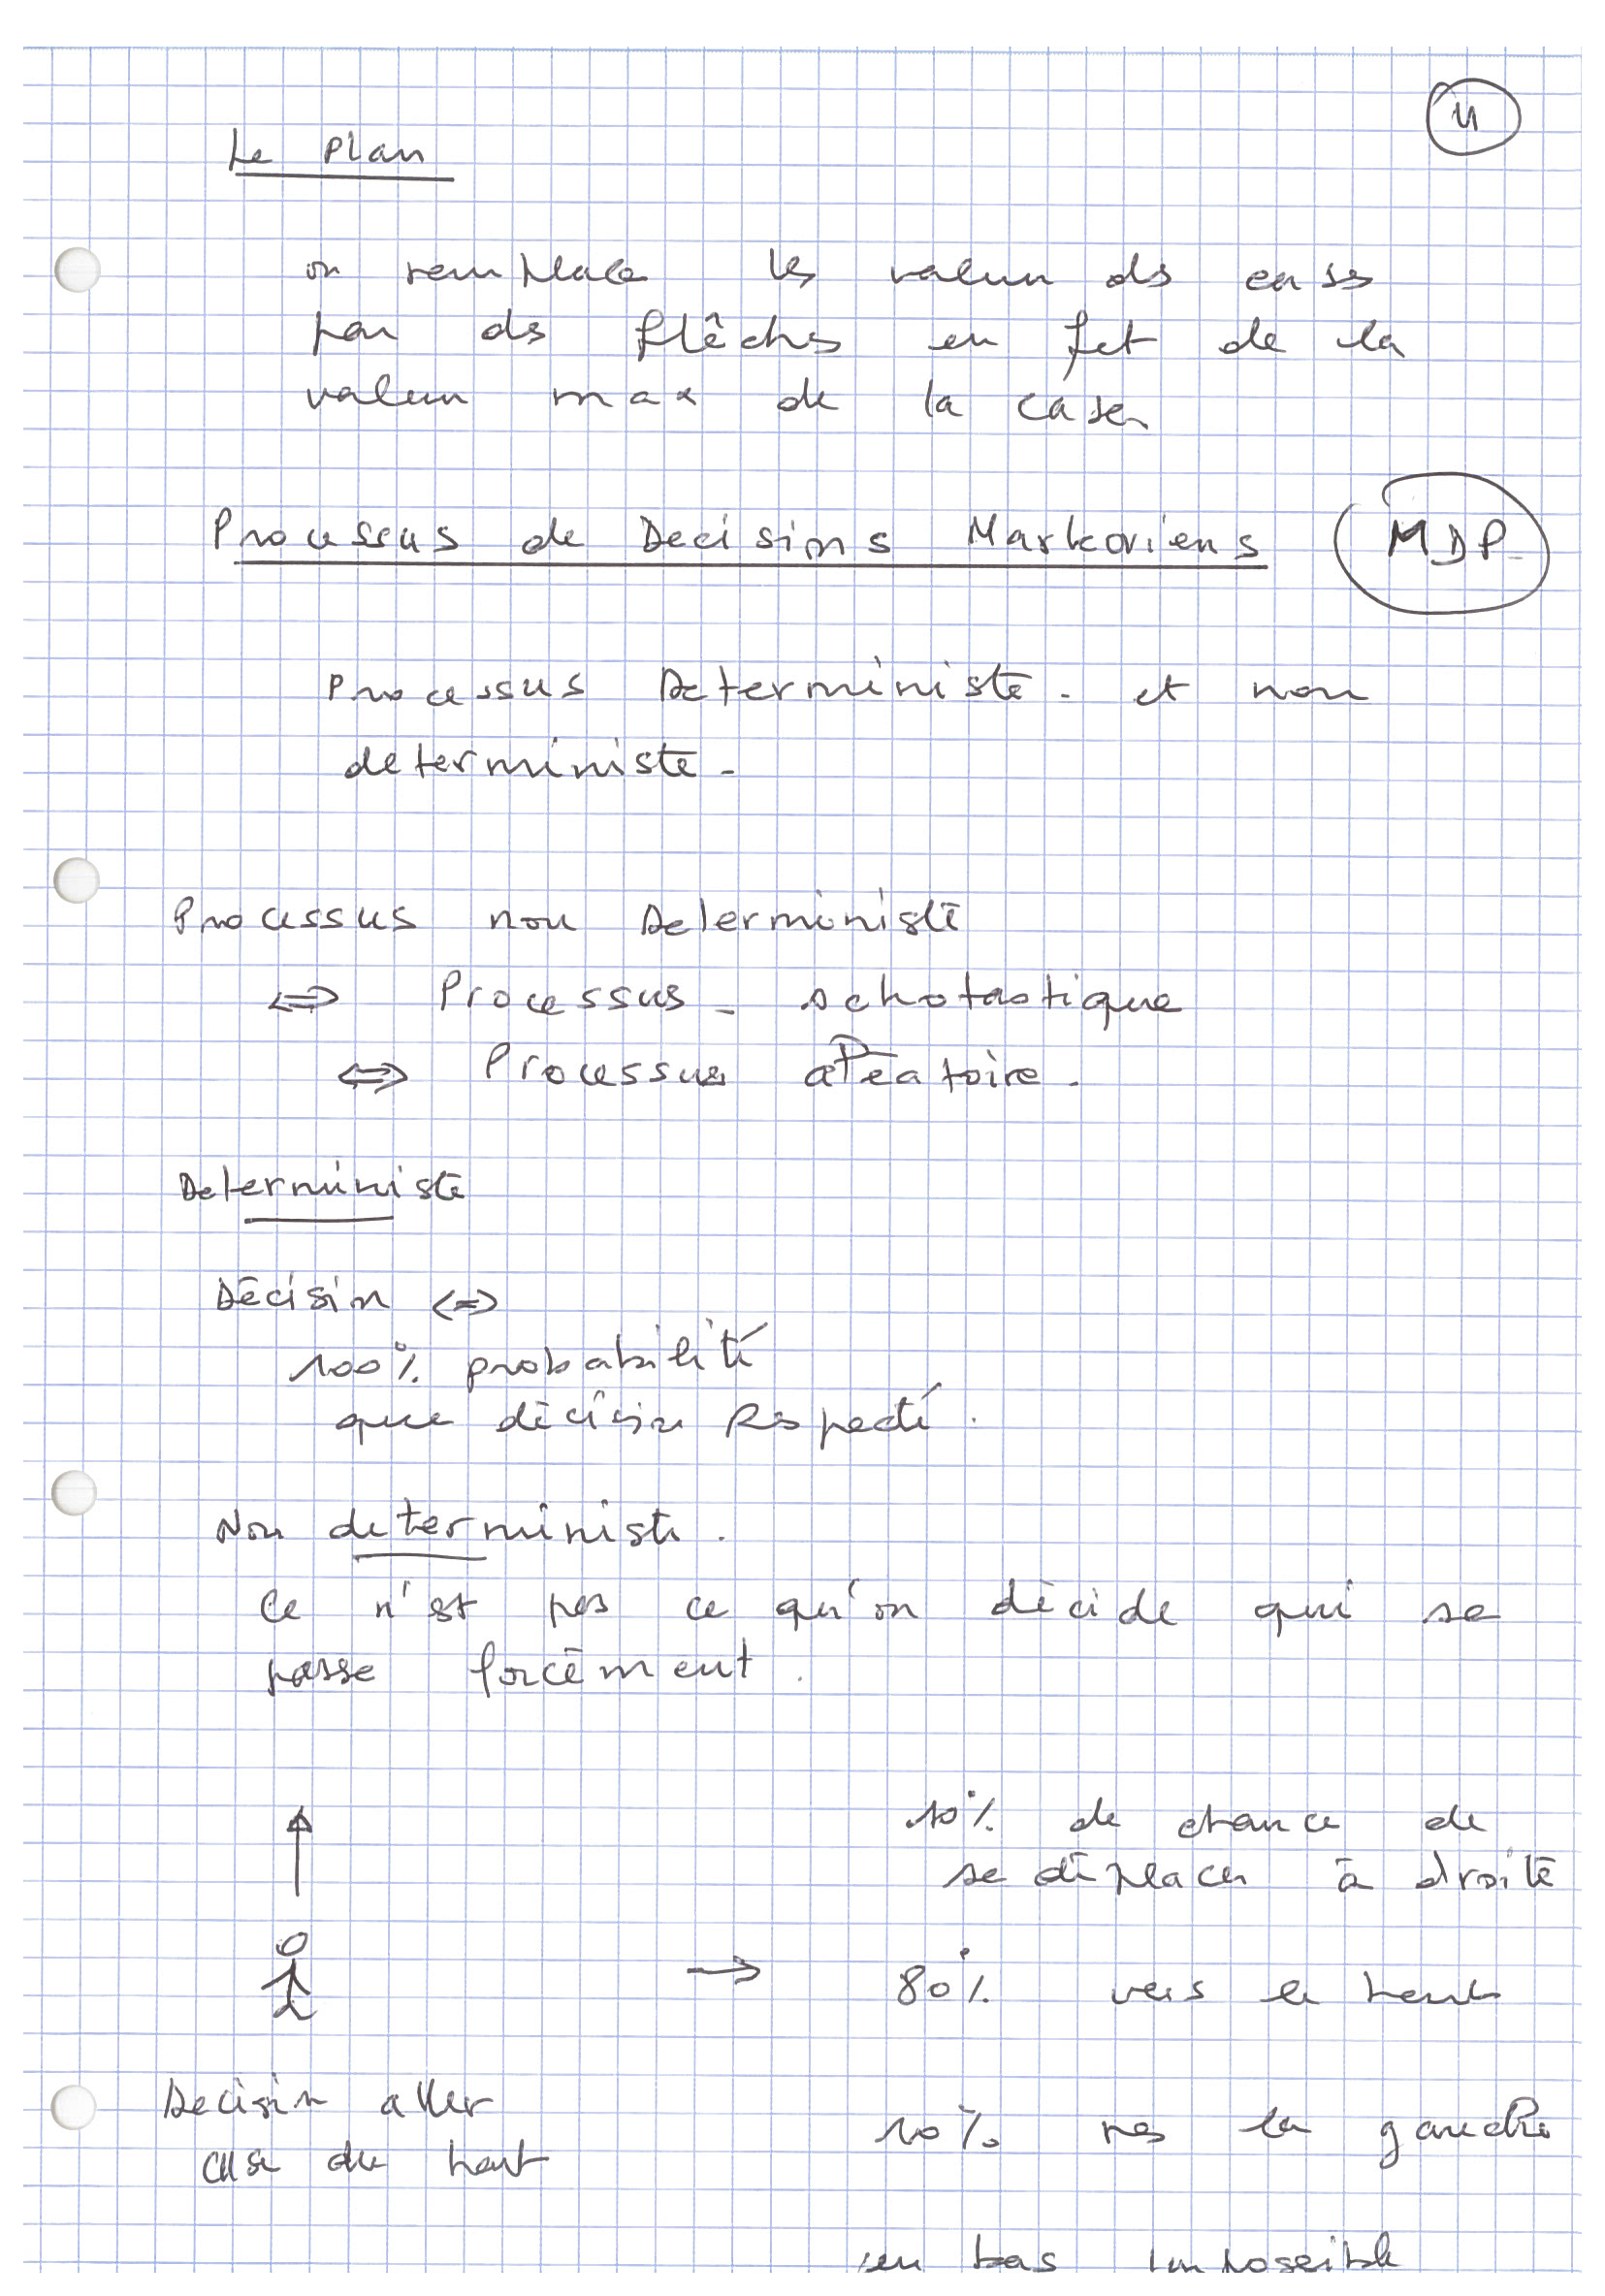 4
Le Plan
on remplace les valeur des cases
par des flêches en fct de la
valeur max de la case
Processus de Decisions Markoviens MDP
Processus Deterministe. et non
deterministe.
Processus non Deterministe
<=> Processus schotastique
<=> Processus aléatoire.
Deterministe
Décision <=>
100% probabilité
que décision Respecté.
Non deterministe.
Ce n'est pas ce qu'on décide qui se
passe forcément.
↑
10% de chance de
se déplacer à droite
→ 80% vers le haut
Decision aller
case du haut
10% vers la gauche
en bas impossible